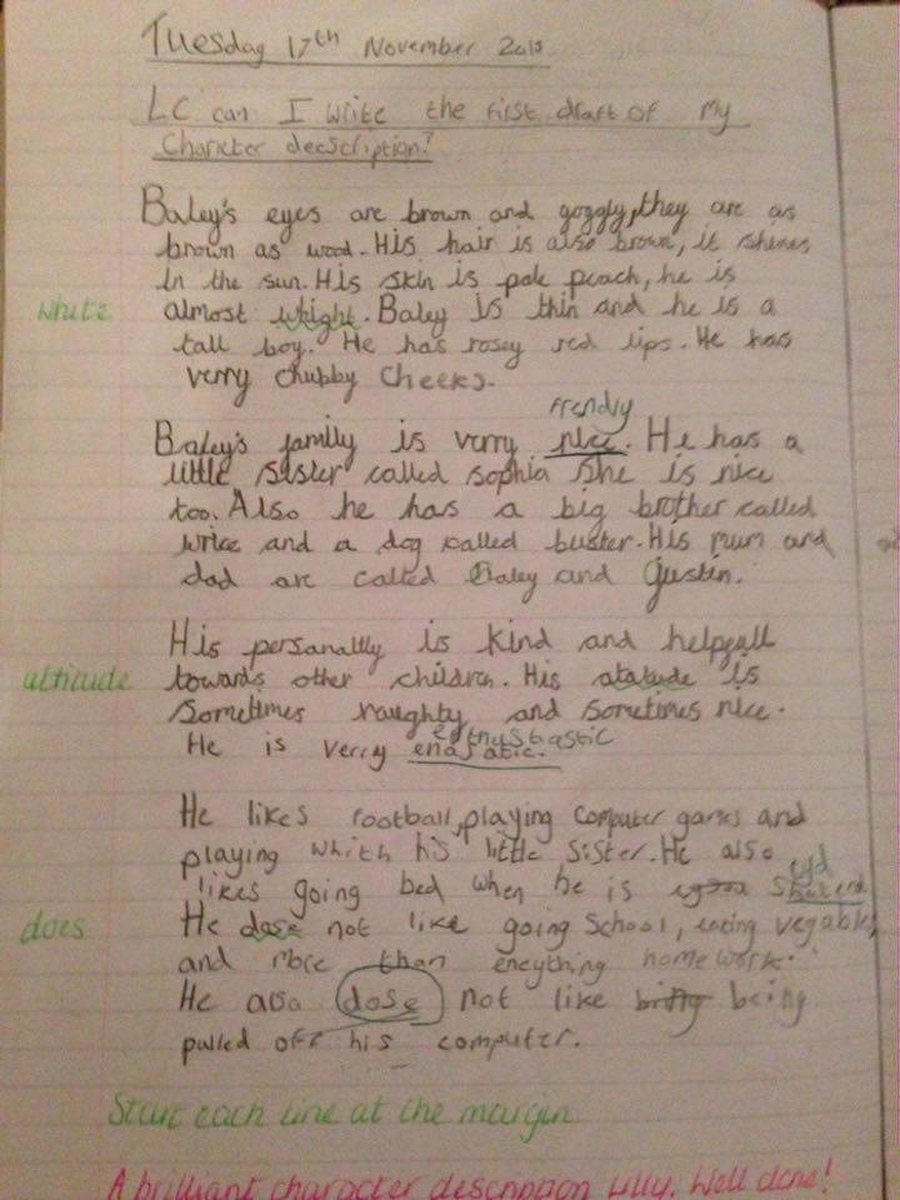 Tuesday 17th November 2015
LC can I write the first draft of my
Character deescliption?
Baley's eyes are brown and goggly, they are as
brown as wood. His hair is also brown, it shines
in the sun. His skin is pale peach, he is
white almost whight. Baley is thin and he is a
tall boy. He has rosey red lips. He has
verry chubby cheeks.
frendly
Baley's family is verry nice. He has a
little sister called sophia she is nice
too. Also he has a big brother called
and a dog called buster. His mum and
dad are called Baley and Justin.
His personallty is kind and helpfull
attitude towards other children. His atatude is
Sometimes naughty and sometimes nice.
enthustastic
He is verry
He likes football, playing computer games and
playing whith his little sister. He also
likes going bed when he is
does He dose not like going School, eating vegables,
and more than enything homework.
He also dose not like being
pulled off his computer.
Start each line at the margin
A brilliant character description Lilly. Well done!